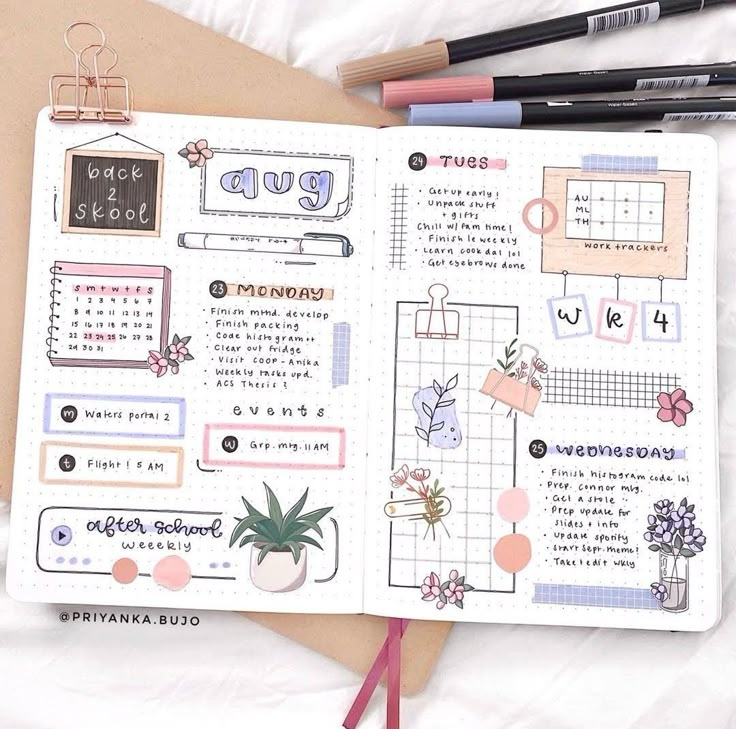 back
2
skool
aug
s m t w t f s
1 2 3 4 5 6 7
8 9 10 11 12 13 14
15 16 17 18 19 20 21
22 23 24 25 26 27 28
29 30 31
23 MONDAY
Finish mthd. develop
• Finish packing
Code histogram
Clear out fridge
• Visit COOP - Anika
Weekly tasks upd.
• ACS Thesis ?
events
m Waters portal 2
t Flight! 5 AM
W Grp. mtg. 11 AM
after school
weeekly
24 TUES
• Get up early!
• Unpack stuff
+ gifts
Chill w/ fam time!
• Finish le weekly
• Learn cook dal lol
• Get eyebrows done
AU
ML
TH
work trackers
wk 4
25 WEDNESDAY
Finish histogram code lol
• Prep. connor mtg.
Get a stole
Prep updates for
slides + info
• update spotify
• start sept. theme
• Take + edit wkly
@PRIYANKA.BUJO